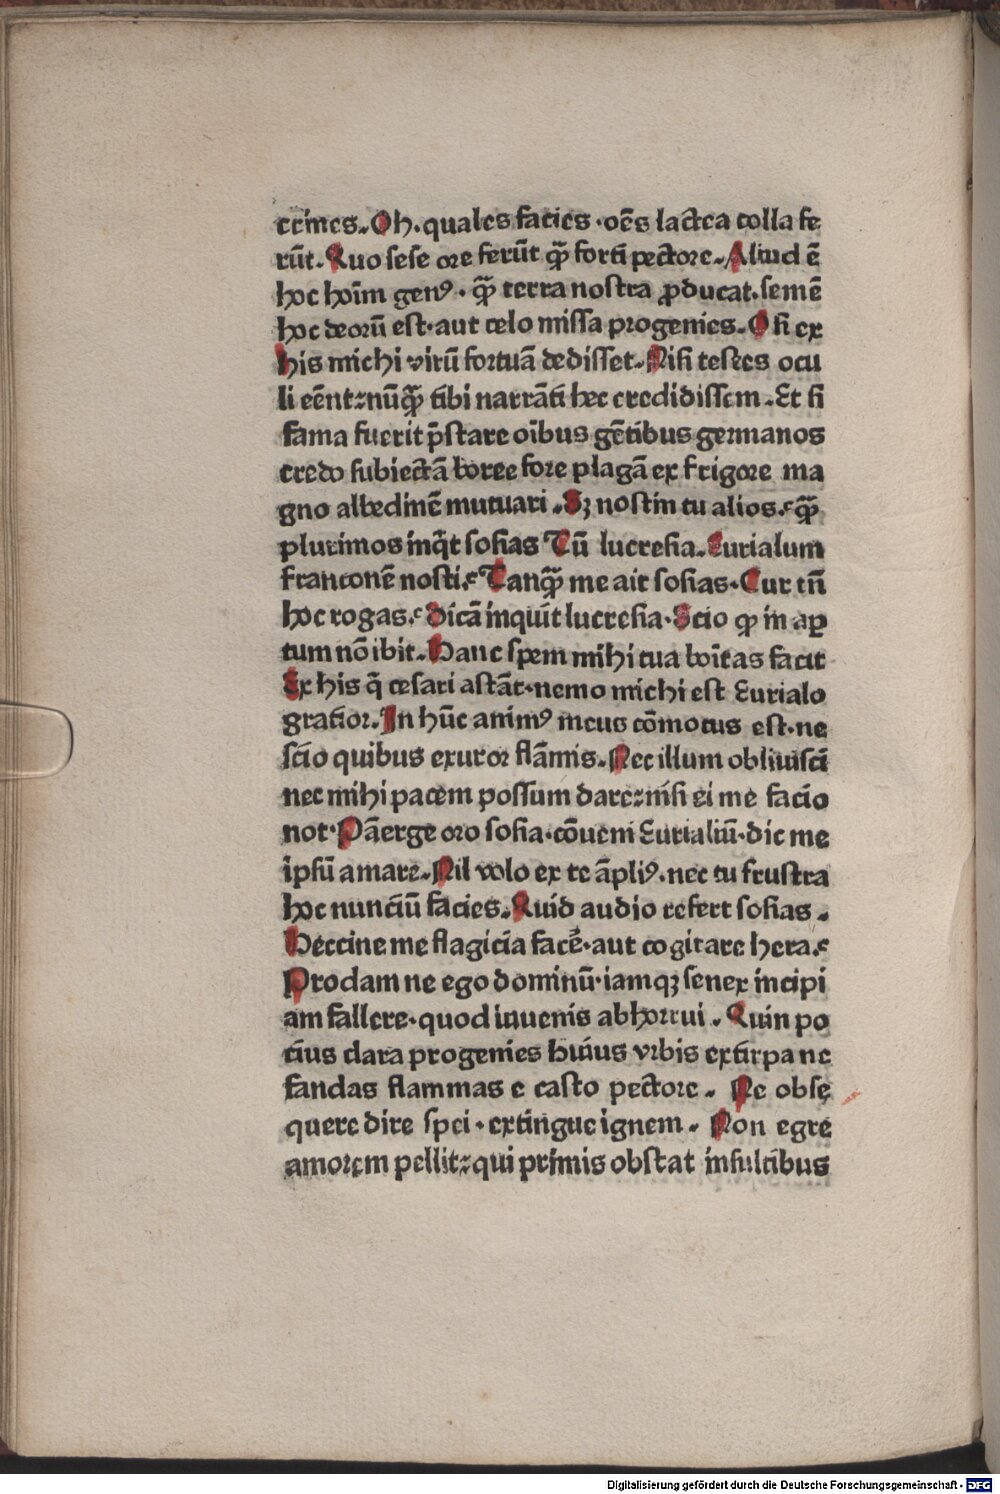 crines. Oh. quales facies · oēs lactea colla fe
rūt. Quo sese ore ferūt qꝫ̄ forti pectore. Aliud ē
hoc hoīm genꝰ · qꝫ̄ terra nostra ꝓducat. semē
hoc deorū est · aut celo missa progenies. O si ex
his michi virū fortuā dedisset. Nisi testes ocu
li eēnt: nūqꝫ̄ tibi narrāti hec credidissem. Et si
fama fuerit p̄stare oībus gētibus germanos
credo subiectā boree fore plagā ex frigore ma
gno albedinē mutuari. Sꝫ nostin tu alios? qꝫ̄
plurimos inq̄t sosias Tū lucresia. Eurialum
franconē nosti? Tanqꝫ̄ me ait sosias. Cur tn̄
hoc rogas? Dicā inquit lucresia. Scio ꝙ in aꝑ
tum nō ibit. Hanc spem mihi tua boītas facit
Ex his q̄ cesari astāt · nemo michi est Eurialo
gratior. In hūc animꝰ meus cōmotus est · ne
scio quibus exuror flāmis. Nec illum obliuisci
nec mihi pacem possum dare: nisi ei me facio
not · Pāerge oro sosia · cōueni Eurialiū · dic me
īpsū amare. Nil volo ex te āpliꝰ. nec tu frustra
hoc nunciū facies. Quid audio refert sosias.
Heccine me flagicia facē · aut cogitare hera?
Prodam ne ego dominū · iamqꝫ senex incipi
am fallere · quod iuuenis abhorrui. Quin po
tius clara progenies huius vrbis extirpa ne
fandas flammas e casto pectore. Ne obsę
quere dire spei · extingue ignem. Non egre
amorem pellit: qui primis obstat insultibus
Digitalisierung gefördert durch die Deutsche Forschungsgemeinschaft - DFG